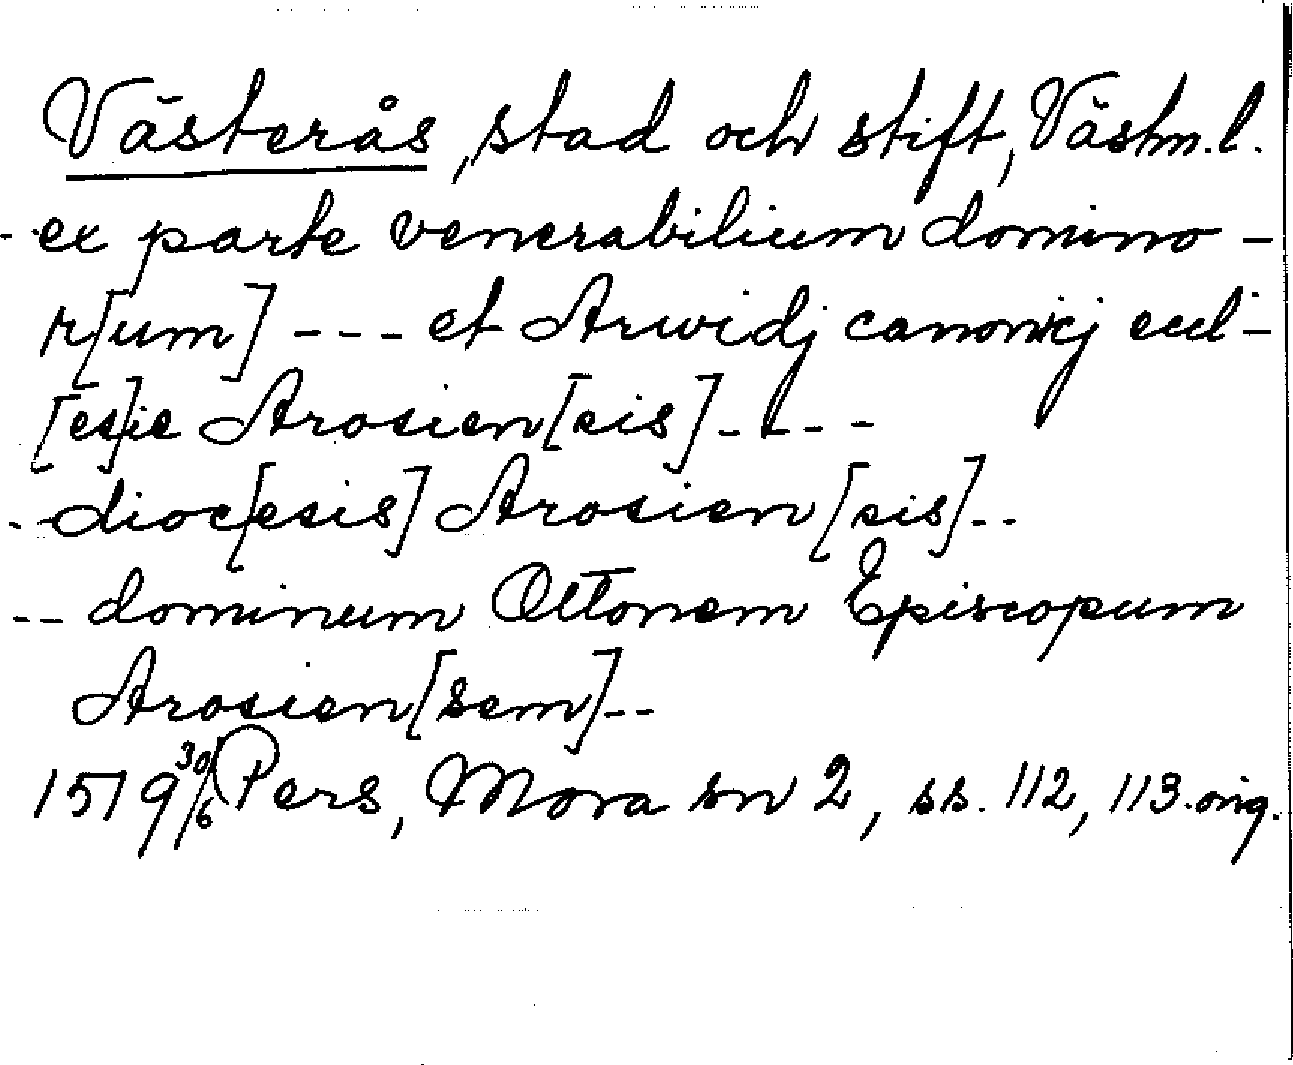 Västerås, stad och stift, Västm.l.
- ex parte venerabilium domino-
r[um] --- et Arwidj canonicj eccl-
[es]ie Arosien[sis] ----
-- dioc[esis] Arosien[sis]--
-- dominum Ottonem Episcopum
Arosien[sem]--
1519 30/6 Pers, Mora sn 2, ss. 112, 113. orig.